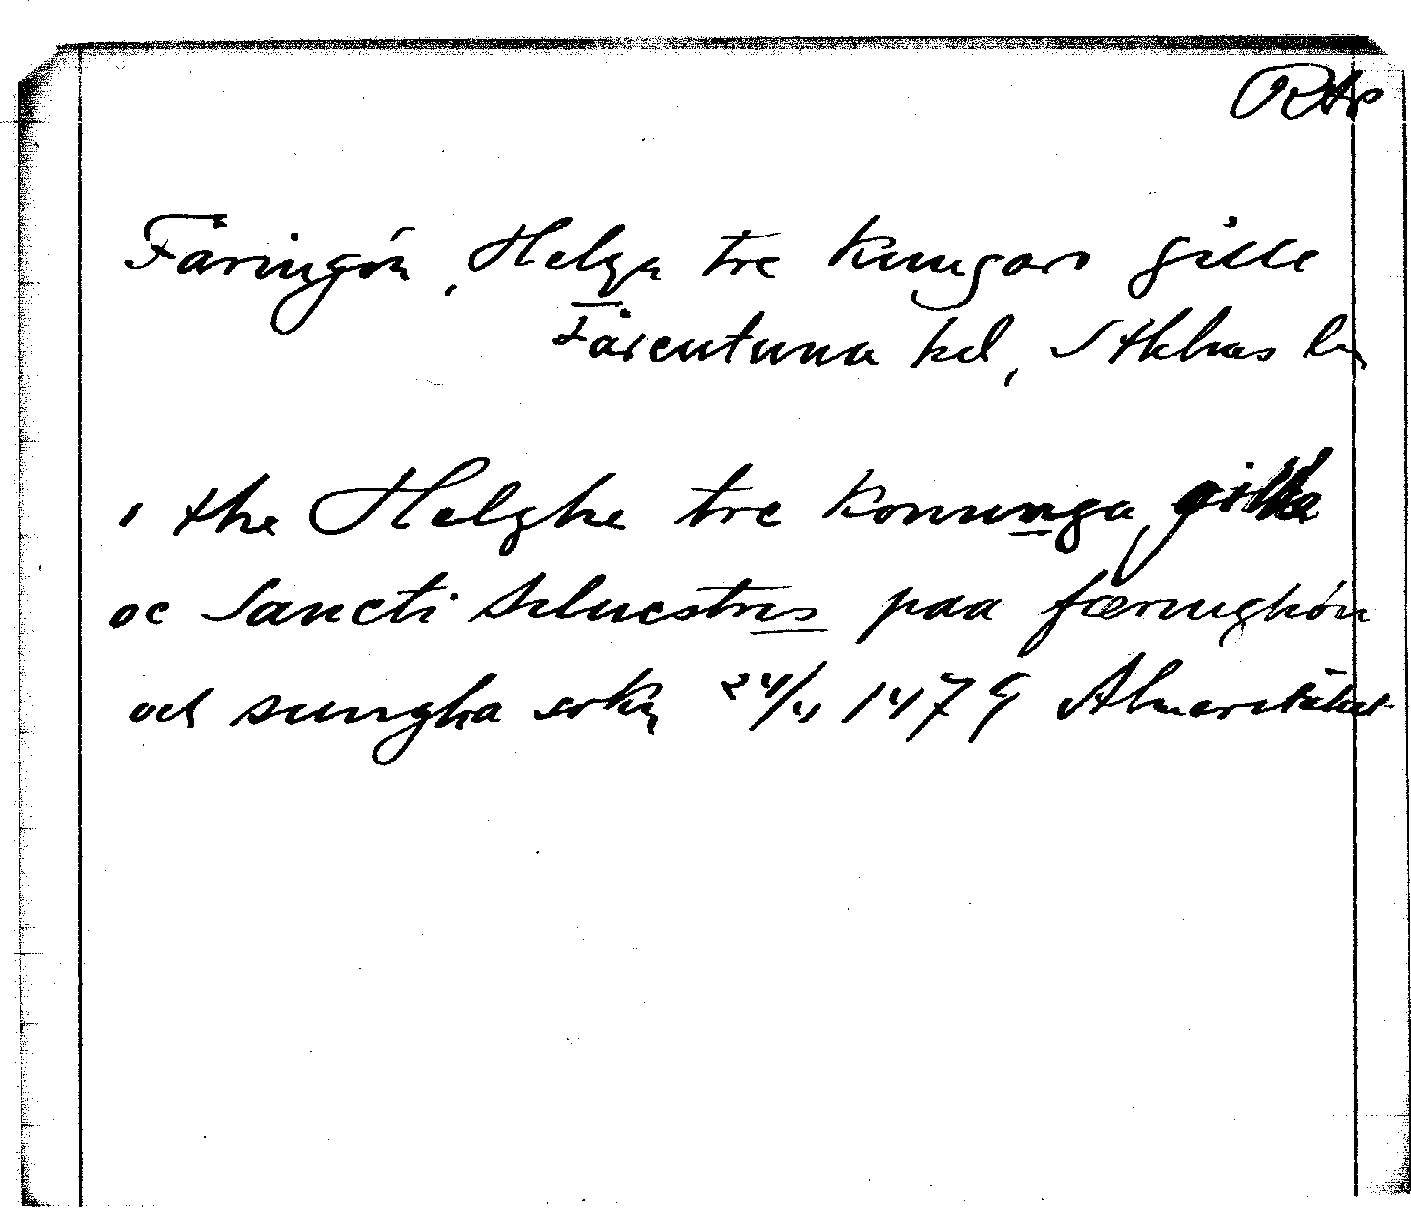 RAp
Färingön, Helga tre kungars gille
Färentuna hd, Sthlms län
i the Helghe tre konunga gilde
oc Sancti siluestris paa færinghön
och sungha sokn 24/4 1479 Almarestäket